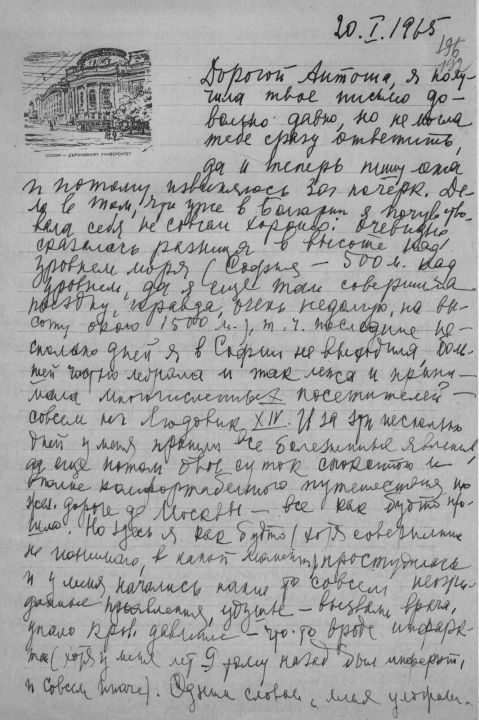 20.I.1965
196
192
СОФИЯ – ДЪРЖАВНИЯТ УНИВЕРСИТЕТ
Дорогой Антоша, я полу-
чила твое письмо до-
вольно давно, но не могла
тебе сразу ответить,
да и теперь пишу лежа
и потому извиняюсь за почерк. Де-
ло в том, что уже в Болгарии я почувство-
вала себя не совсем хорошо: очевидно
сказалась разница в высоте над
уровнем моря (София – 500 м. над
уровнем, да я еще там совершила
поездку, правда, очень недолгую, на вы-
соту около 1500 м.), т. ч. последние не-
сколько дней я в Софии не выходила, боль-
шей частью лежала и так лежа и прини-
мала многочисленных посетителей –
совсем как Людовик XIV. И за эти несколько
дней у меня прошли все болезненные явления,
да еще потом двое суток спокойного и
вполне комфортабельного путешествия по
жел. дороге до Москвы – все как будто про-
шло. Но здесь я как будто (хотя совершенно
не понимаю, в какой момент) простудилась
и у меня начались какие то совсем неожи-
данные явления, удушье – вызвали врача,
упало кров. давление – что-то вроде инфарк-
та (хотя у меня лет 9 тому назад был инфаркт,
и совсем иначе). Одним словом, меня уложили.